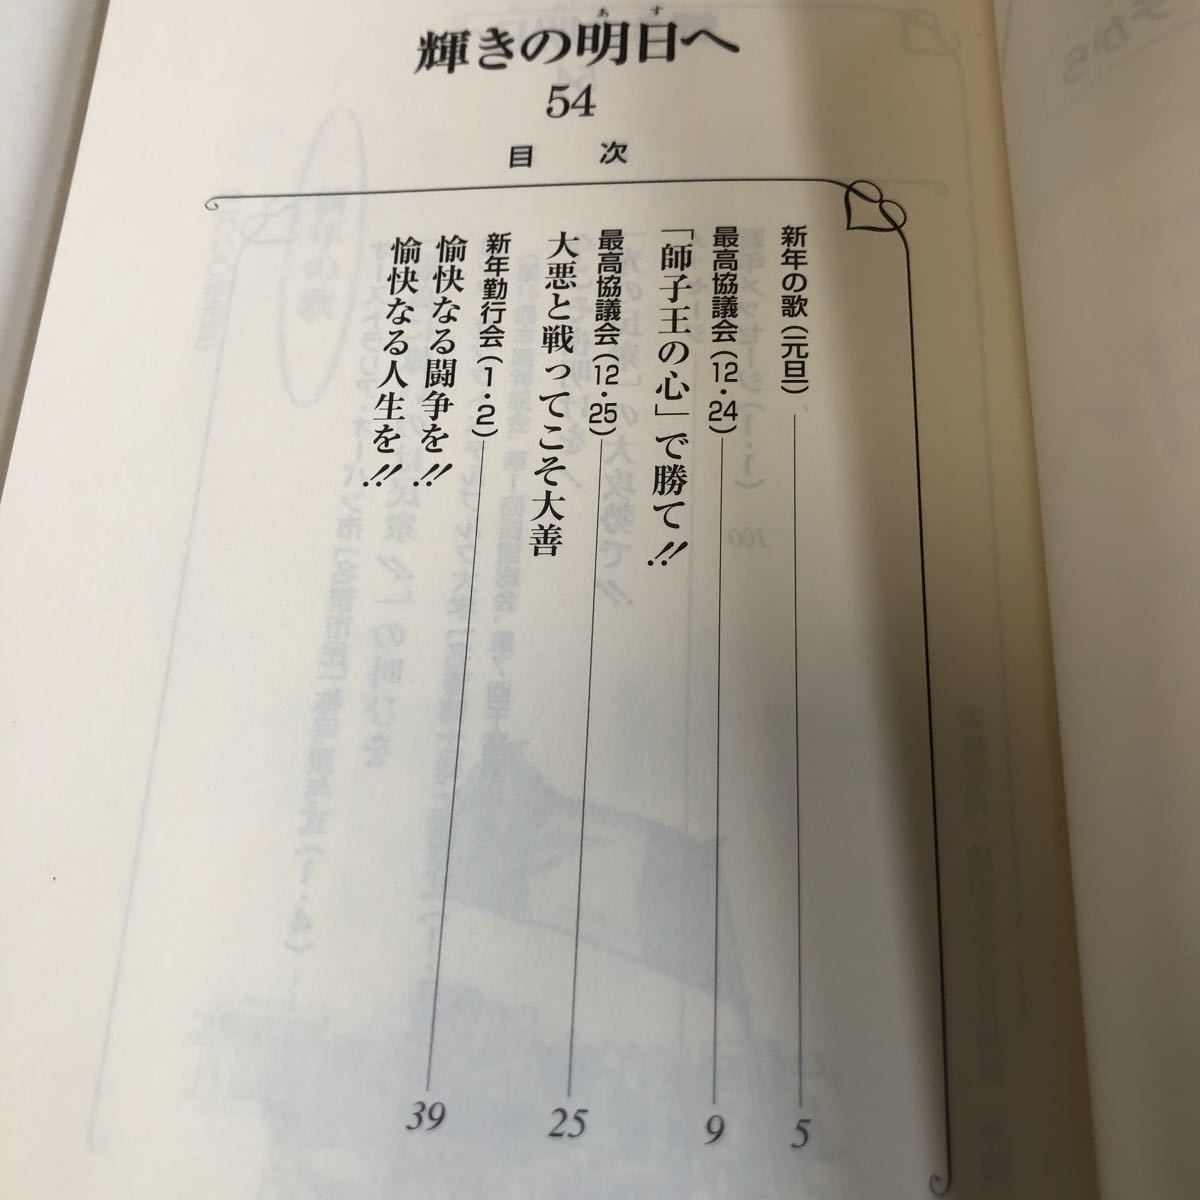 輝きの明日へ
あす
54
目次
新年の歌(元旦) 5
最高協議会(12・24) 9
「師子王の心」で勝て!!
最高協議会(12・25) 25
大悪と戦ってこそ大善
新年勤行会(1・2) 39
愉快なる闘争を!!
愉快なる人生を!!